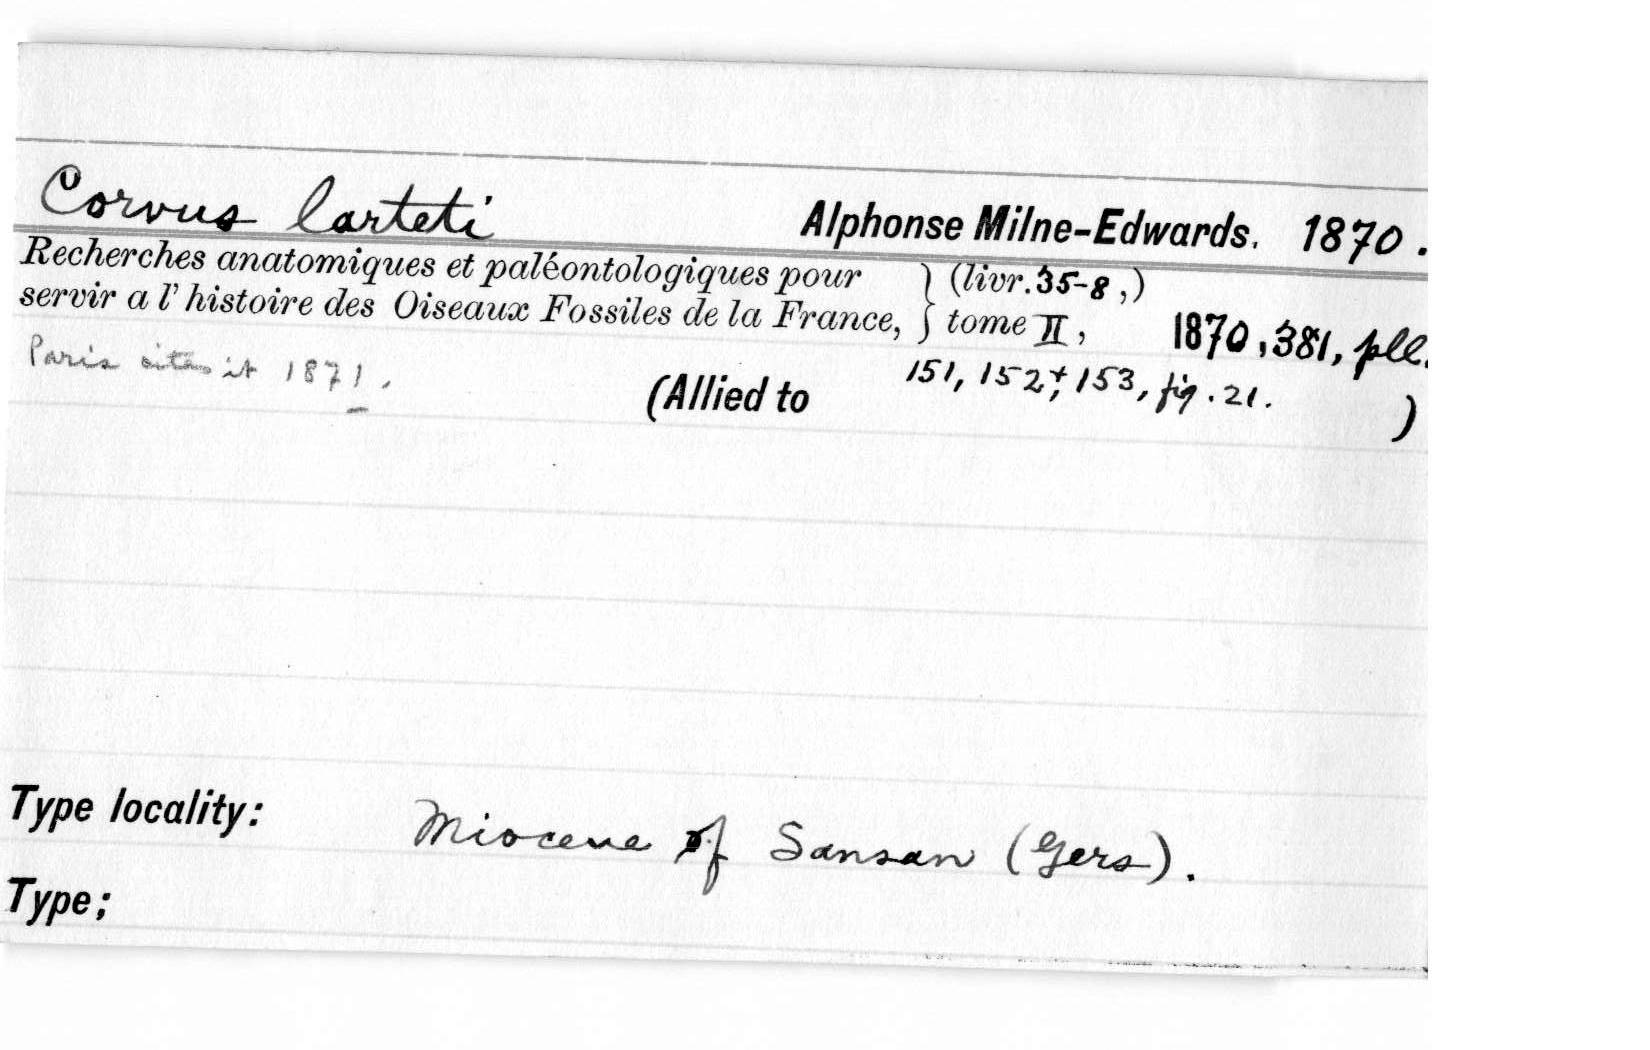 Corvus larteti Alphonse Milne-Edwards. 1870.
Recherches anatomiques et paléontologiques pour } (livr. 35-8,)
servir a l' histoire des Oiseaux Fossiles de la France, } tome II, 1870, 381, pll.
Paris cites it 1871. 151, 152, + 153, fig. 21.
(Allied to )
Type locality: Miocene of Sansan (Gers).
Type;